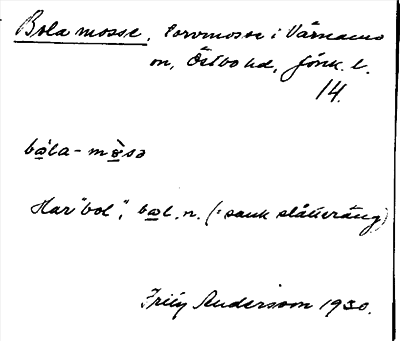 Bola mosse, torvmosse i Värnamo
sn, Östbo hd, Jönk. l.
14.
bo̲la-mo̲sə
Har "bol", bol, n. (: sank slåtteräng)
Andersson 1930.